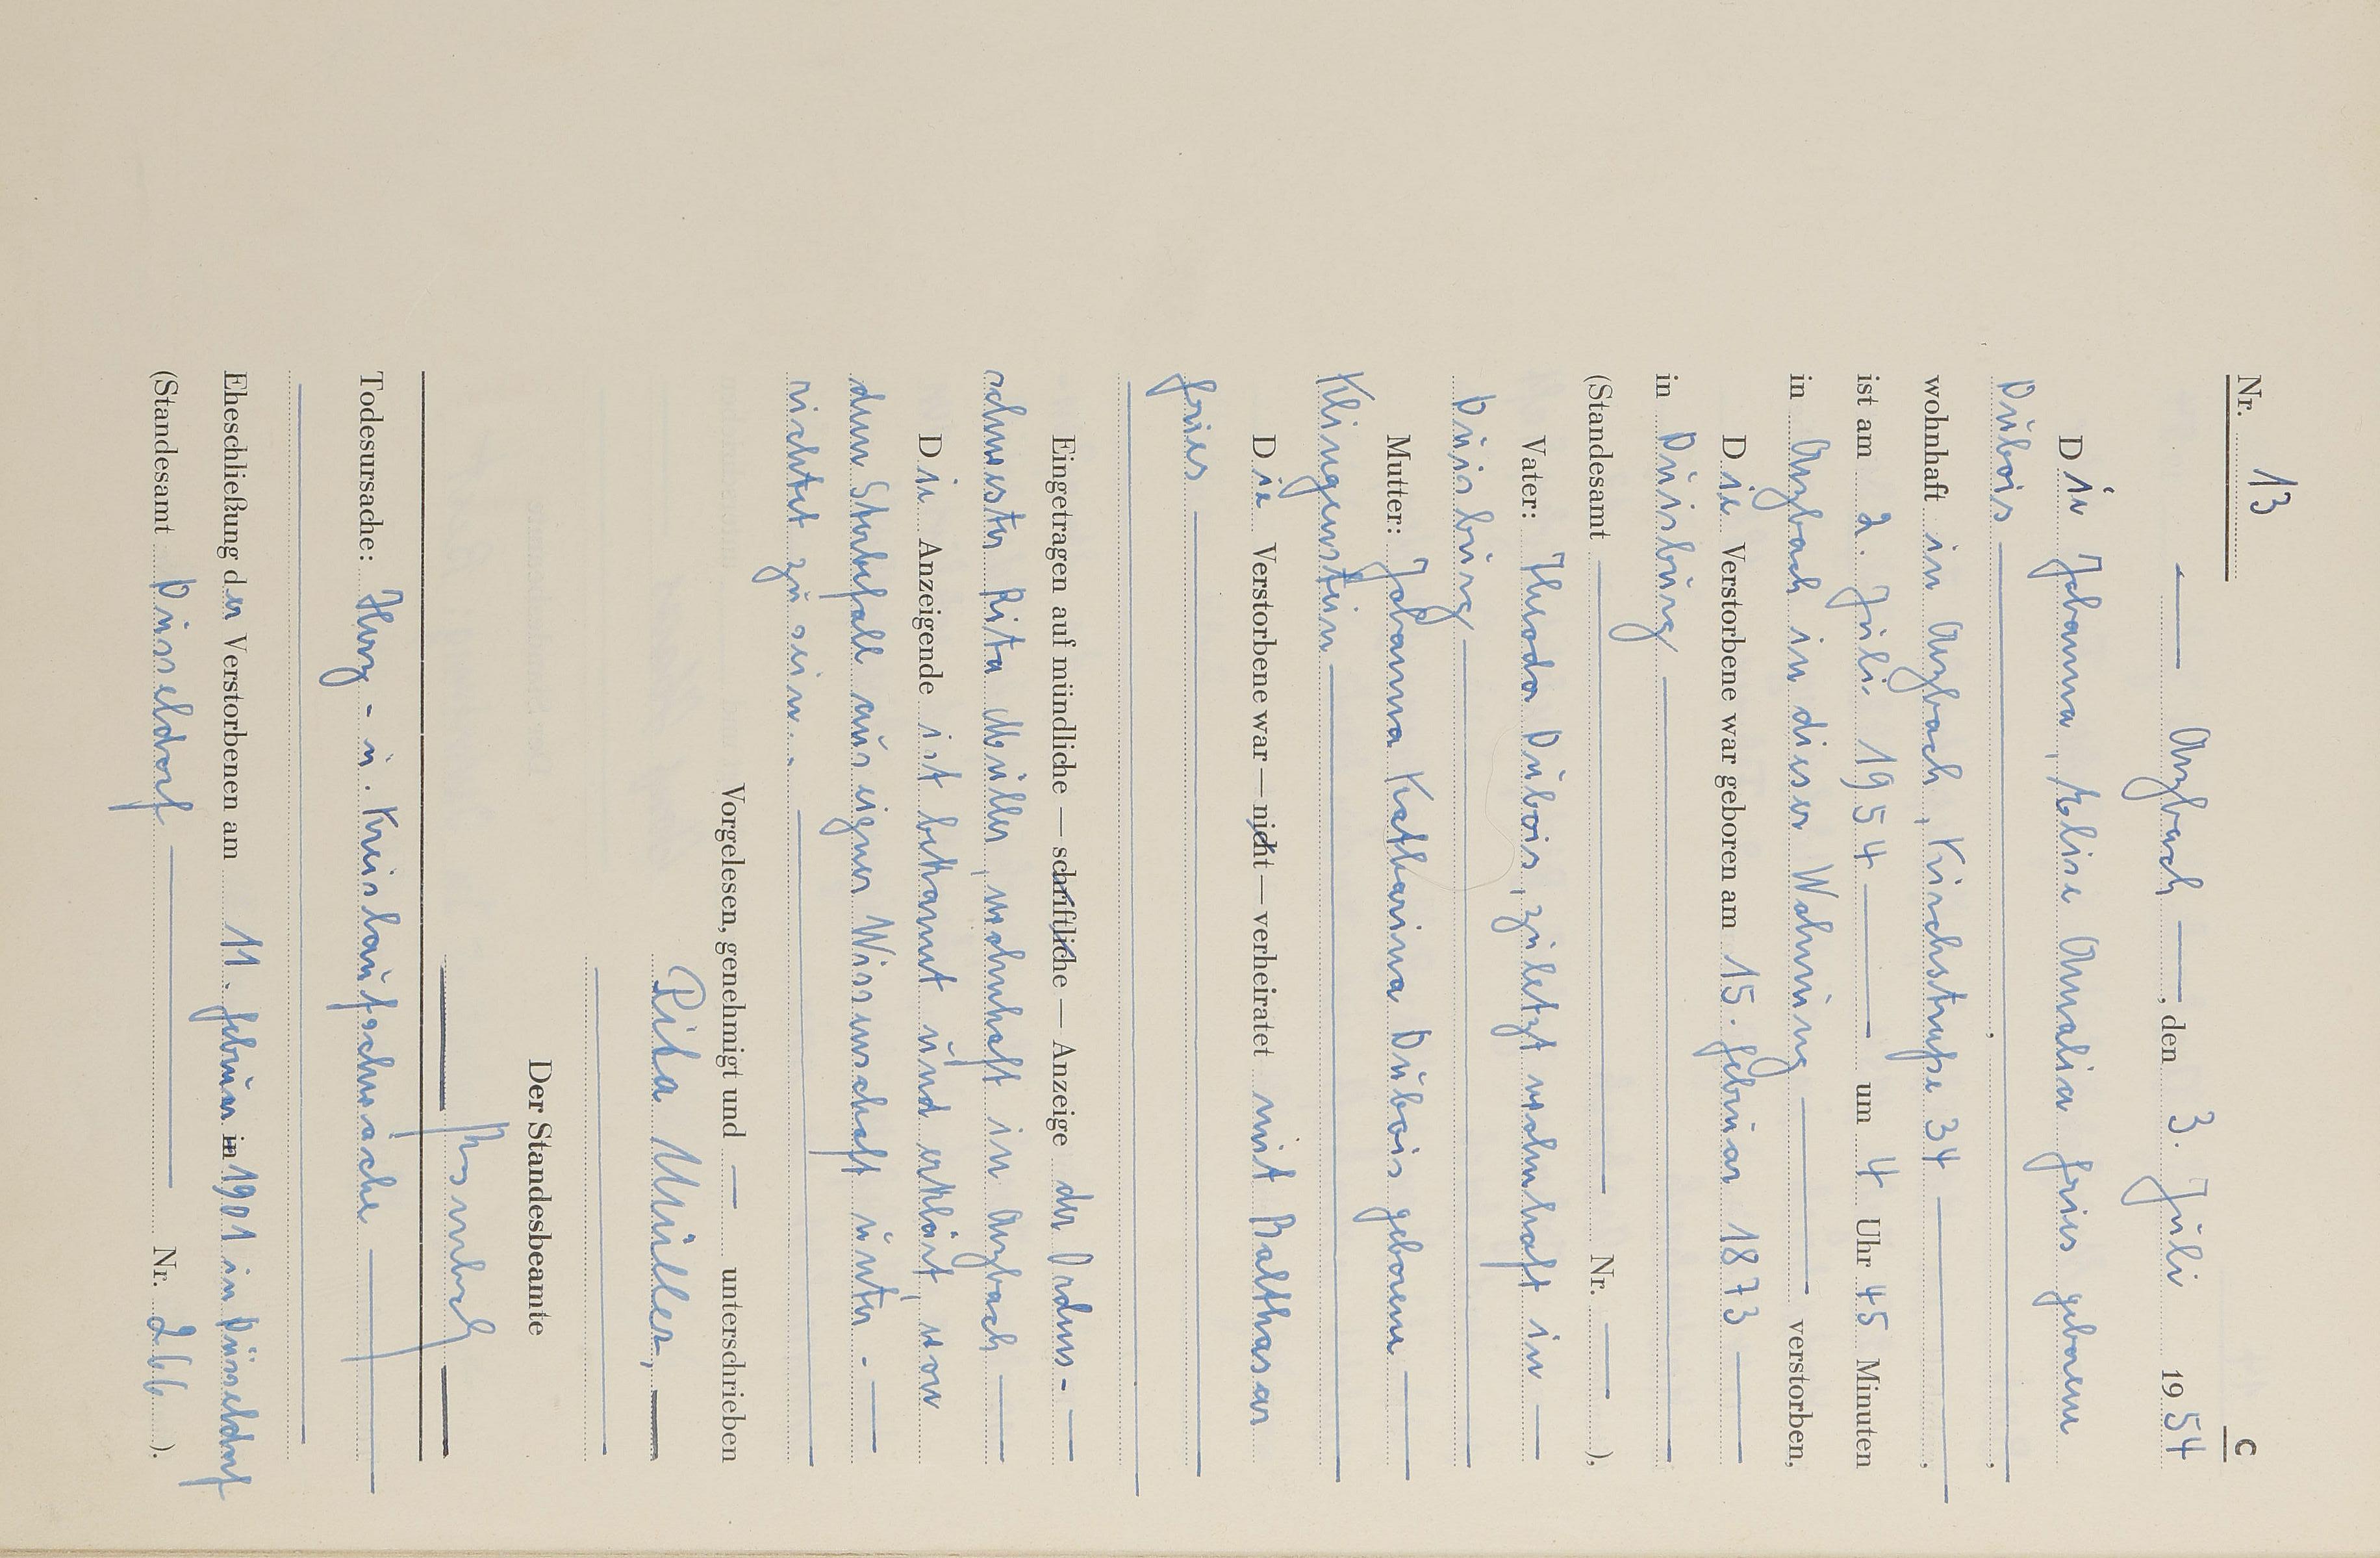 C
Nr. 13
Arzbach, den 3. Juli 1954
Die Johanna, Elise Amalia Fries geborene
Dubois,
wohnhaft in Arzbach, Kirchstraße 34,
ist am 2. Juli 1954 um 4 Uhr 45 Minuten
in Arzbach in dieser Wohnung verstorben,
Die Verstorbene war geboren am 15. Februar 1873
in Duisburg
(Standesamt — Nr. — ),
Vater: Theodor Dubois, zuletzt wohnhaft in
Duisburg
Mutter: Johanna Katharina Dubois geborene
Klingenstein
Die Verstorbene war — nicht — verheiratet mit Balthasar
Fries
Eingetragen auf mündliche — schriftliche — Anzeige der Ordens-
schwester Rita Müller, wohnhaft in Arzbach
Die Anzeigende ist bekannt und erklärt, von
dem Sterbefall aus eigner Wissenschaft unter-
richtet zu sein.
Vorgelesen, genehmigt und — unterschrieben
Rita Müller,
Der Standesbeamte
Todesursache: Herz- u. Kreislaufschwäche
Eheschließung der Verstorbenen am 11. Februar in 1901 in Düsseldorf
(Standesamt Düsseldorf Nr. 266 ).